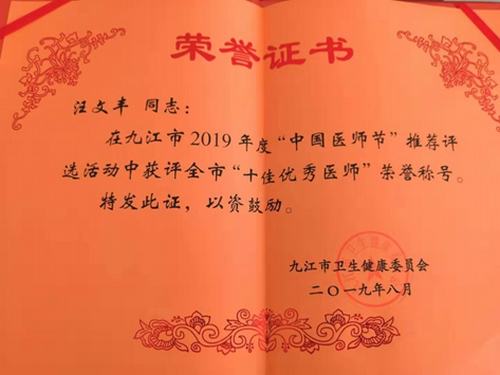 荣誉证书
汪文丰 同志：
在九江市2019年度“中国医师节”推荐评
选活动中获评全市“十佳优秀医师”荣誉称号。
特发此证，以资鼓励。
九江市卫生健康委员会
二〇一九年八月